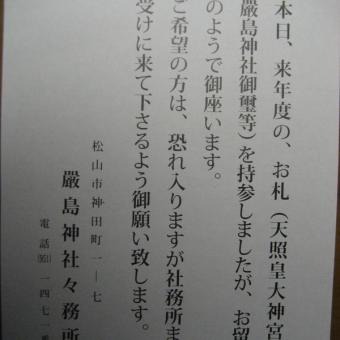 本日、来年度の、お札（天照皇大神宮
嚴島神社御璽等）を持参しましたが、お留
のようで御座います。
ご希望の方は、恐れ入りますが社務所ま
受けに来て下さるよう御願い致します。
松山市神田町一―七
嚴島神社々務所
電話㈹一四七一番